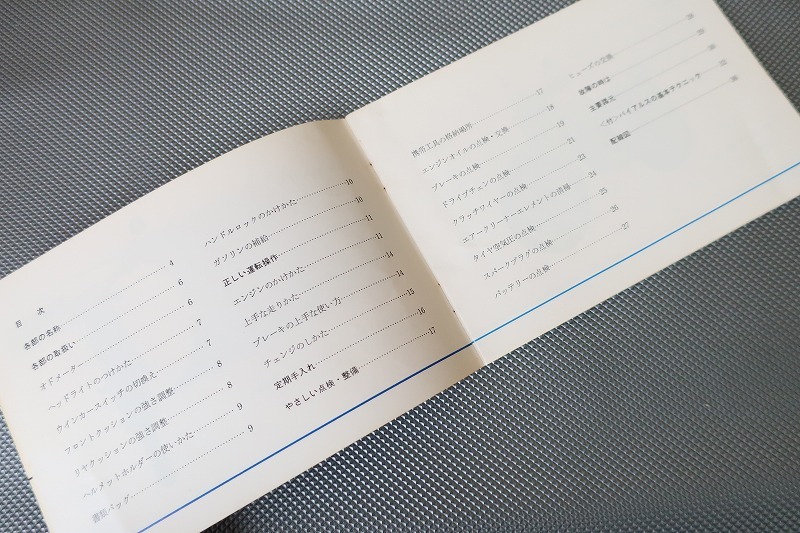 目次
各部の名称 4
各部の取扱い 6
オドメータ 6
ヘッドライトのつけかた 7
ウインカースイッチの切換え 7
フロントクッションの強さ調整 8
リヤクッションの強さ調整 8
ヘルメットホルダーの使いかた 9
書類バッグ 9
ハンドルロックのかけかた 10
ガソリンの補給 10
正しい運転操作 11
エンジンのかけかた 11
上手な走りかた 14
ブレーキの上手な使い方 14
チェンジのしかた 15
定期手入れ 16
やさしい点検・整備 17
携帯工具の格納場所 17
エンジンオイルの点検・交換 18
ブレーキの点検 19
ドライブチェンの点検 21
クラッチワイヤーの点検 23
エアークリーナーエレメントの掃除 24
タイヤ空気圧の点検 25
スパークプラグの点検 26
バッテリーの点検 27
ヒューズの交換
故障の時は
主要諸元
〈付〉バイアルスの基本テクニック
配線図